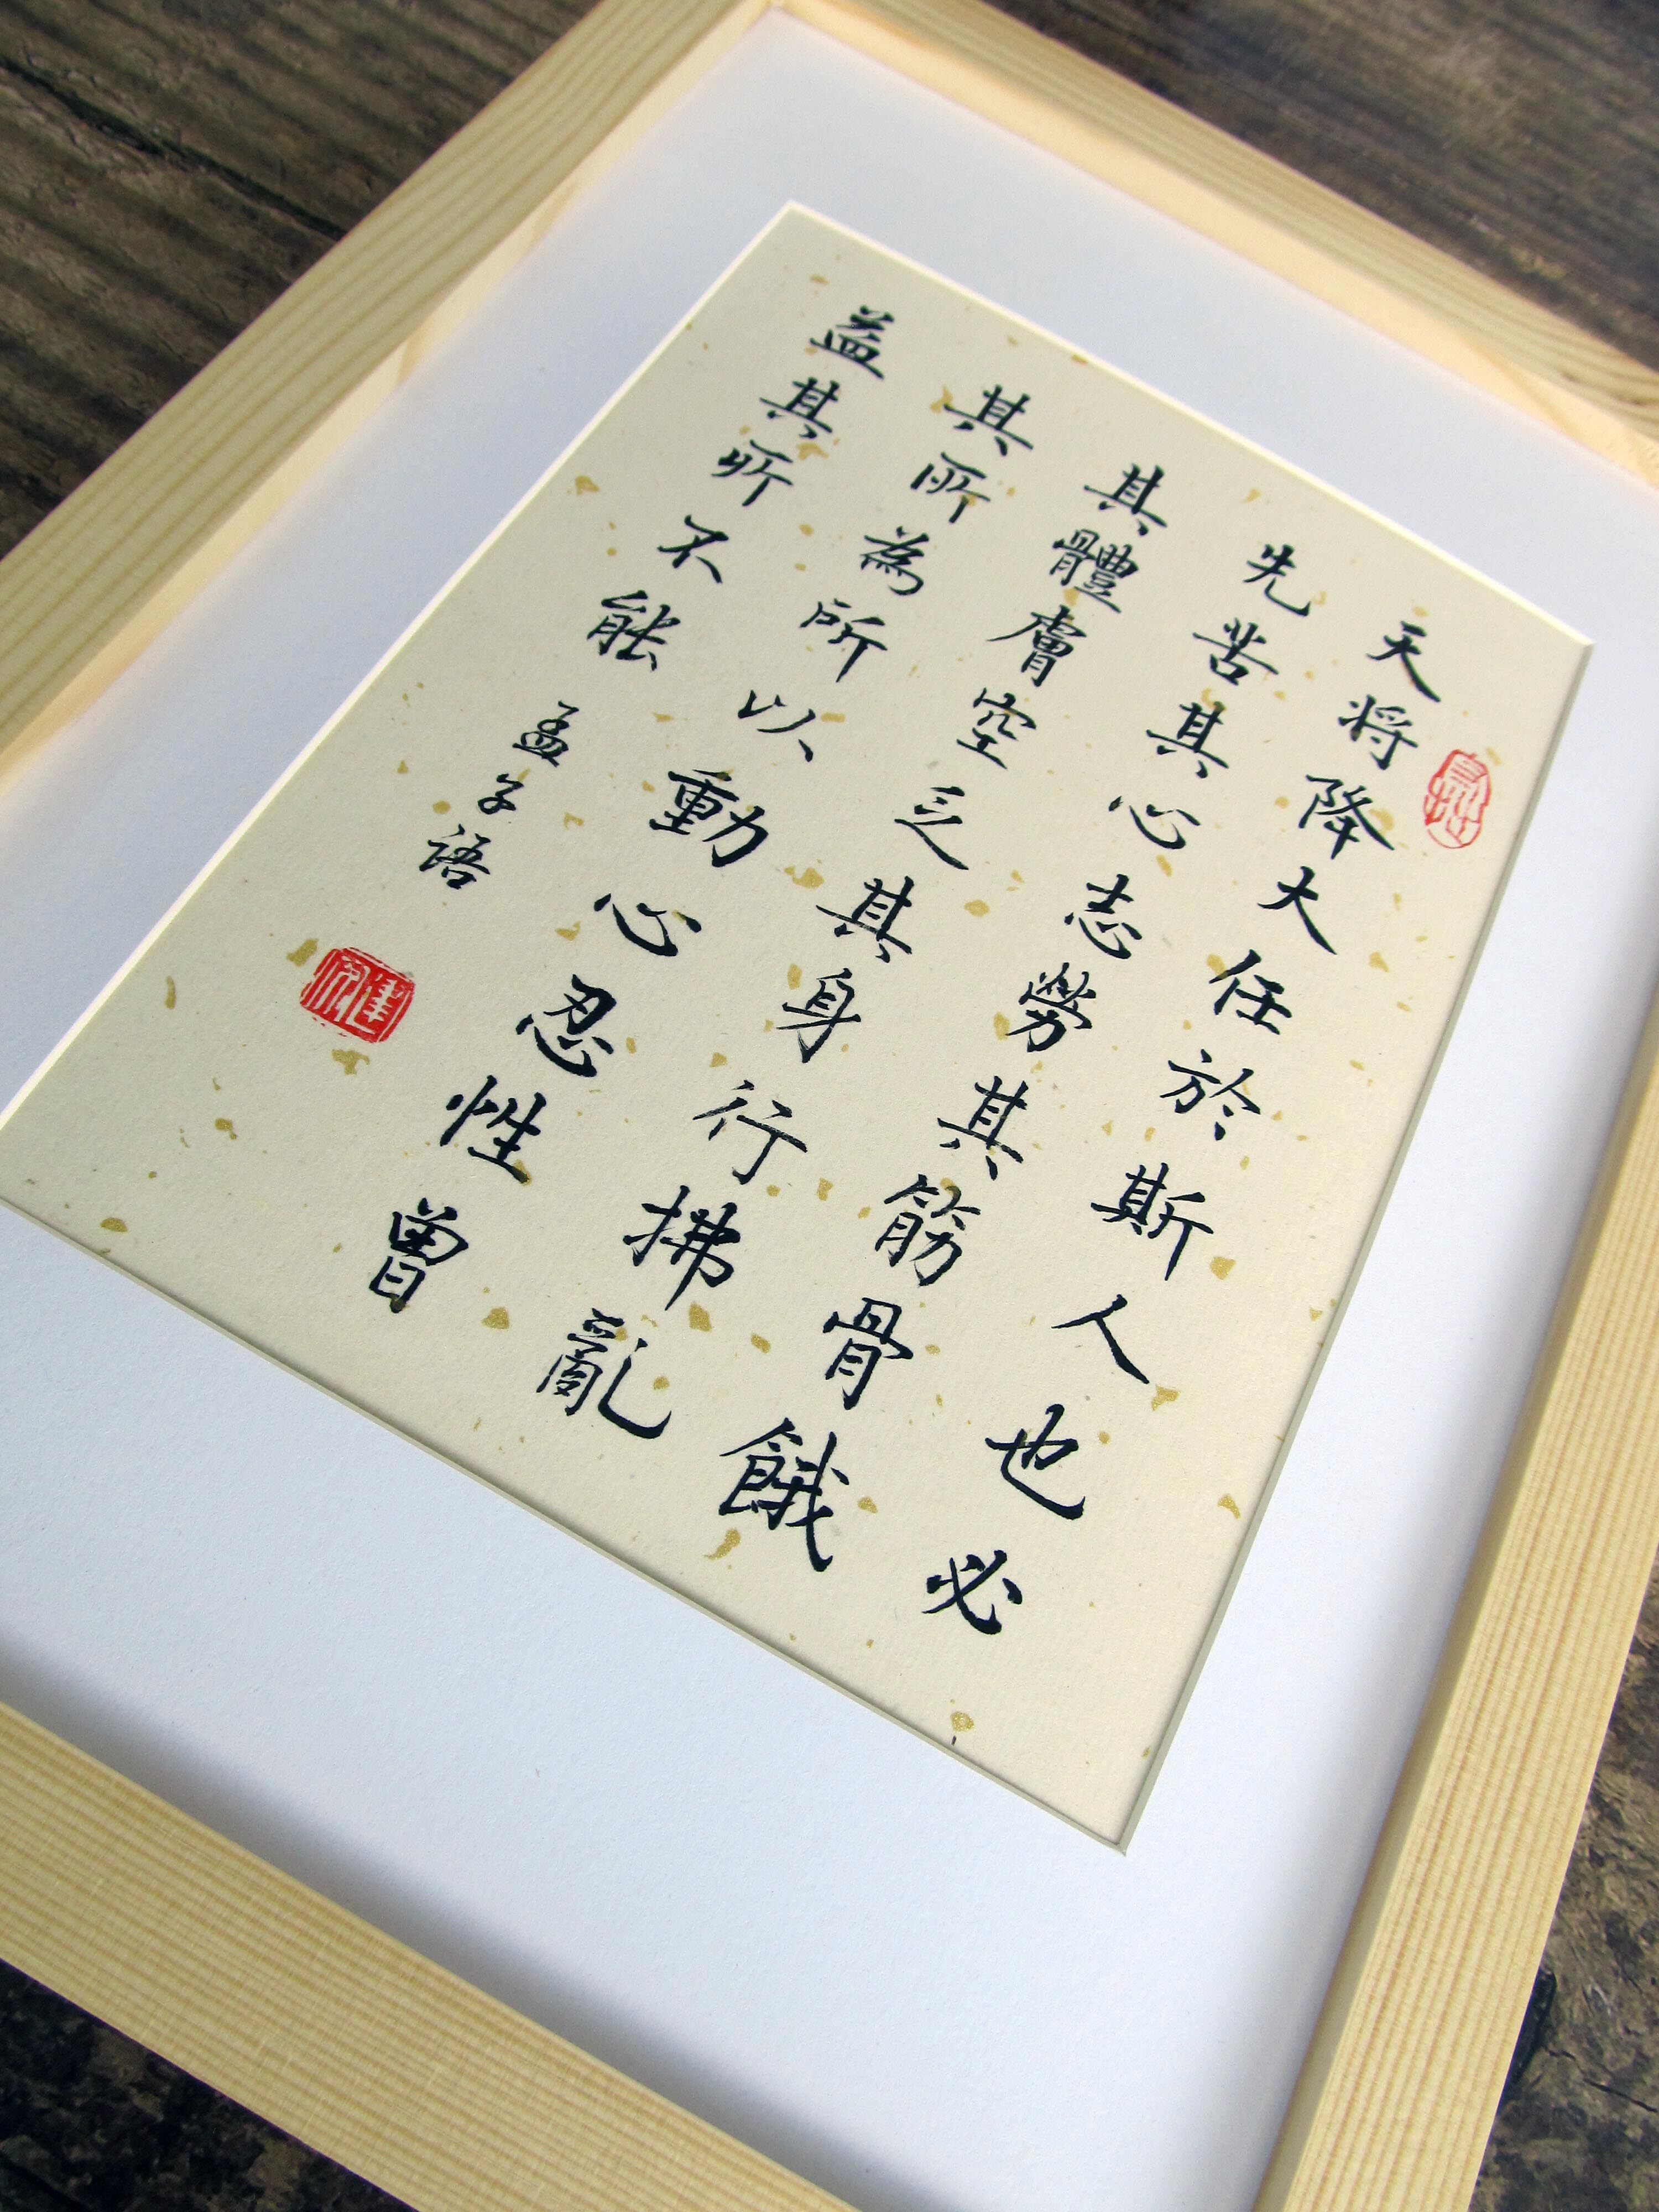 天將降大任於斯人也必
先苦其心志勞其筋骨餓
其體膚空乏其身行拂亂
其所為所以動心忍性曾
益其所不能
孟子語